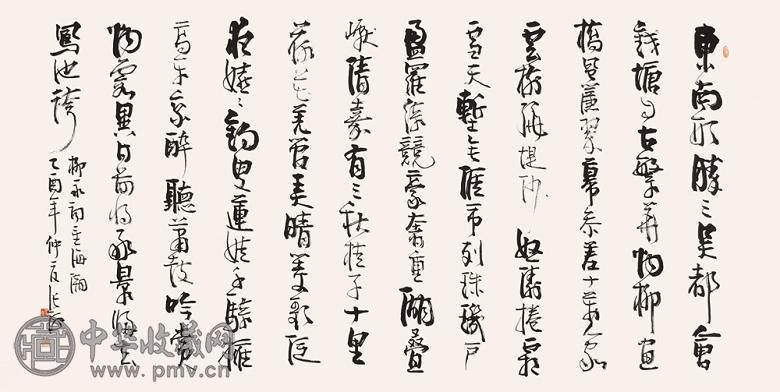 東南形勝三吳都會
錢塘自古繁華烟柳畫
橋風簾翠幕参差十萬人家
雲樹繞堤沙怒濤捲霜
雪天塹無涯市列珠璣戶
盈羅綺競豪奢重湖疊
巘清嘉有三秋桂子十里
荷花羌管弄晴菱歌泛
夜嬉々釣叟蓮娃千騎擁
高牙乘醉聽簫鼓吟賞
烟霞異日圖將好景歸去
鳳池誇
柳永詞望海潮
乙酉年仲夏
中华收藏网
www.pmv.cn